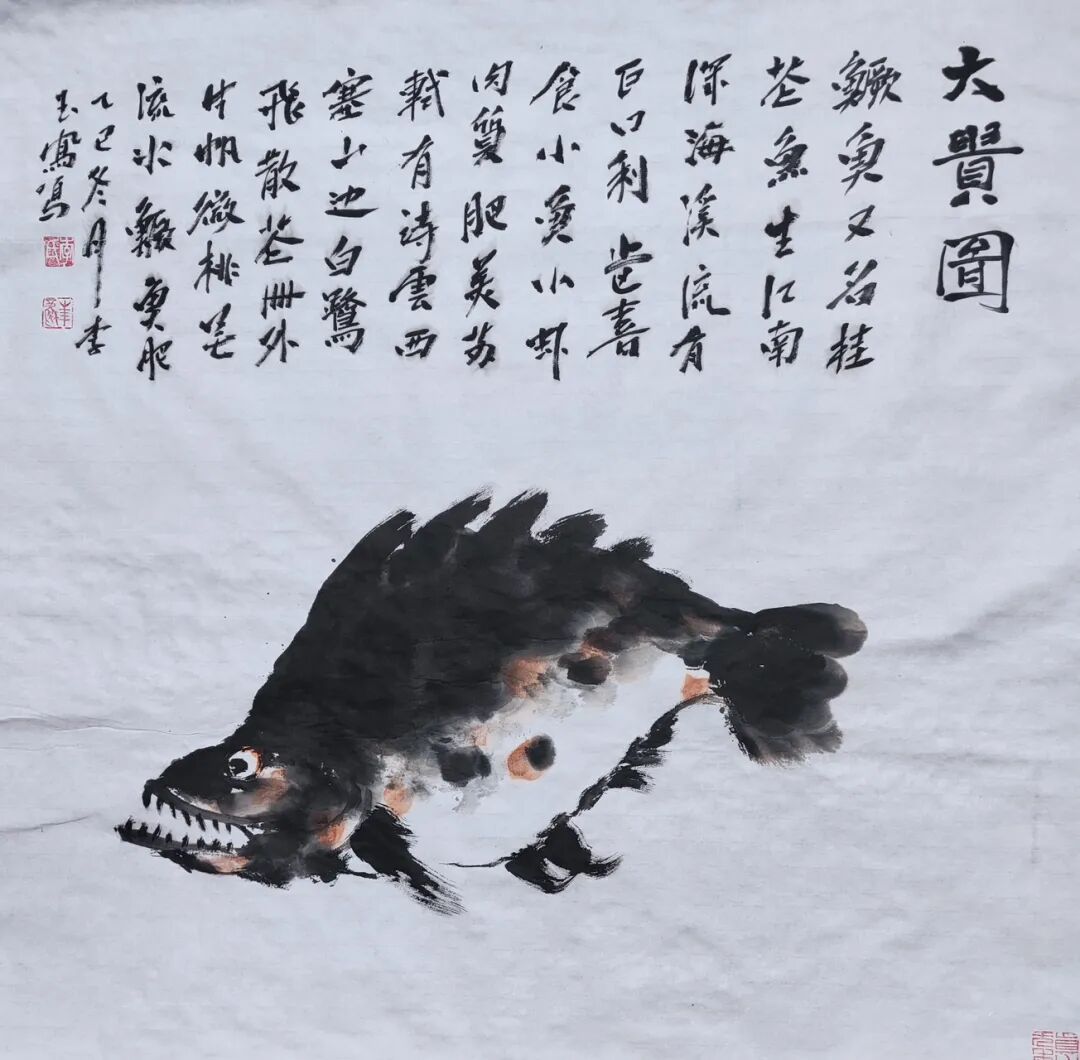 大貴圖
鱖魚又名桂
花魚生江南
深海溪流有
巨口利齿喜
食小魚小虾
肉質肥美古
載有诗雲西
塞山边白鹭
飛散花洲外
片帆微桃花
流水鱖魚肥
乙巳冬月李
玉鳳鸣